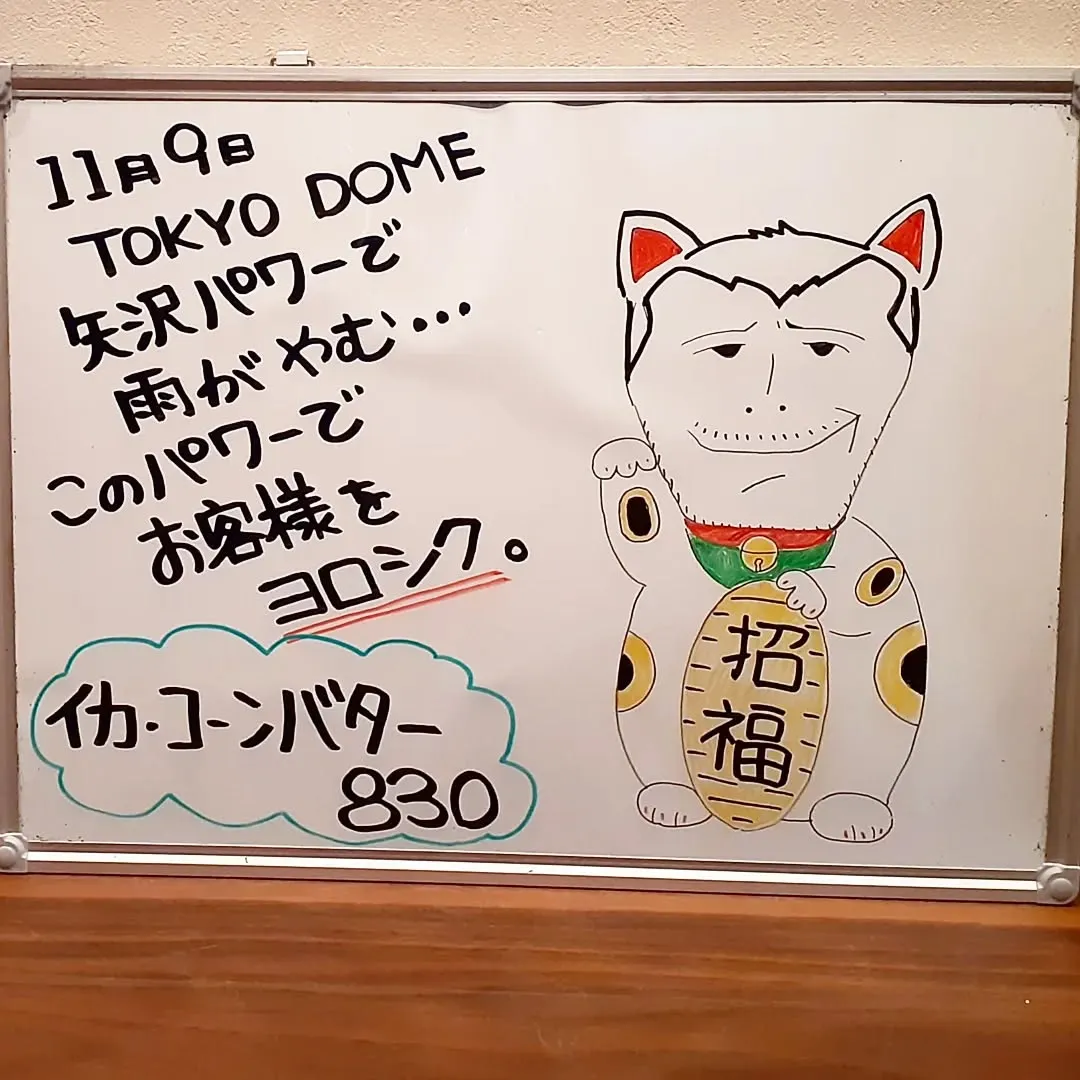 11月9日
TOKYO DOME
矢沢パワーで
雨がやむ・・・
このパワーで
お客様を
ヨロシク。
イカ・コーンバター
830
招
福